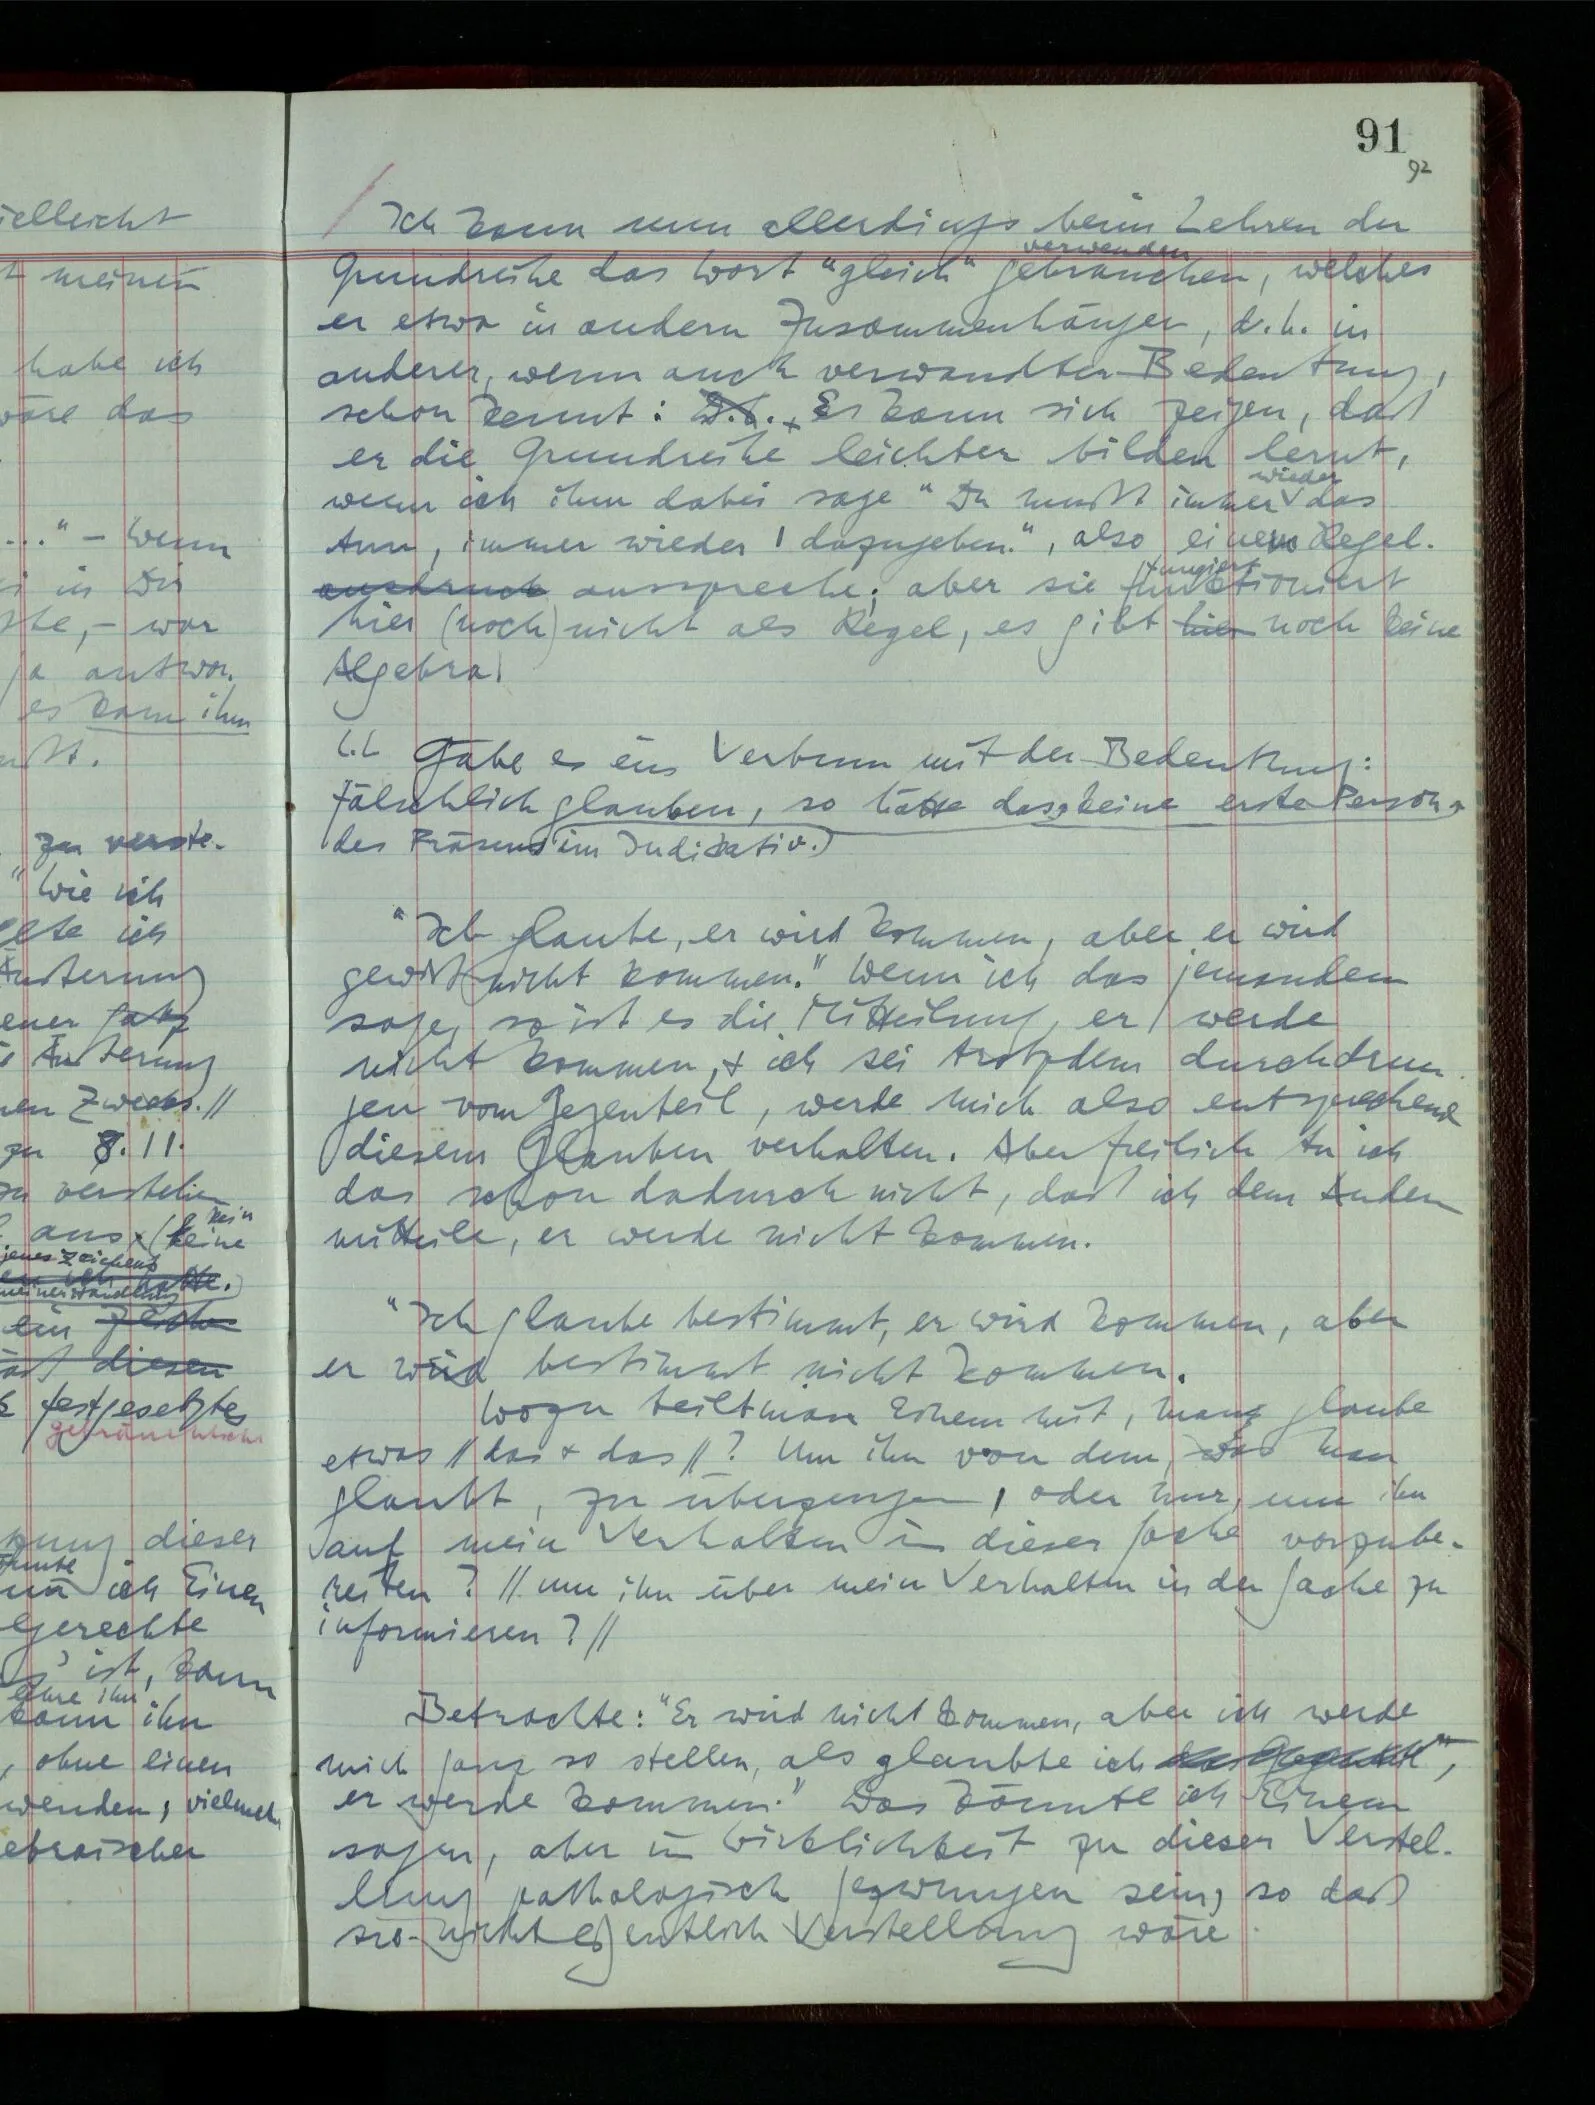 ielleicht
t meinen
habe ich
wäre das
..." – wenn
i in Dir
te, – war
ja antwor-
es kann ihm
zu verste-
" Wie ich
ich
Äußerung
ener ganz
Äußerung
nen Zwecks.//
zu 8.11.
zu verstehen
kein
aus × (keine
jenes Zeichens
ich hatte.)
meiner Handlung
ein
diesen
festgesetztes
gebräuchlich
dieser
ich Einen
gerechte
ist, kann
lehre ihn
kann ihn
, ohne einen
wenden, vielmeh
ebraischer
91
92
/ Ich kann nun allerdings beim Lehren der
verwenden
Grundreihe das Wort "gleich" gebrauchen, welches
er etwa in andern Zusammenhängen, d.h. in
anderer, wenn auch verwandter Bedeutung,
schon kennt: D.h. Es kann sich zeigen, daß
er die Grundreihe leichter bilden lernt,
wieder
wenn ich ihm dabei sage "Du mußt immer das
tun, immer wieder 1 dazugeben.", also eine Regel-
fungiert
ausdruck ausspreche; aber sie funktioniert
hier (noch) nicht als Regel, es gibt hier noch keine
Algebra.
Gäbe es ein Verbum mit der Bedeutung:
fälschlich glauben, so hätte das keine erste Person
des Präsens im Indikativ.)
"Ich glaube, er wird kommen, aber er wird
gewiß nicht kommen." Wenn ich das jemandem
sage, so ist es die Mitteilung, er werde
nicht kommen, & ich sei trotzdem durchdrun-
gen vom Gegenteil, werde mich also entsprechend
diesem Glauben verhalten. Aber freilich tu ich
das schon dadurch nicht, daß ich dem Andern
mitteile, er werde nicht kommen.
"Ich glaube bestimmt, er wird kommen, aber
er wird bestimmt nicht kommen.
Wozu teilt man Einem mit, man glaube
etwas // das & das // ? Um ihn von dem, was man
glaubt, zu überzeugen, oder nur, um ihn
auf mein Verhalten in dieser Sache vorzube-
reiten? // um ihn über mein Verhalten in der Sache zu
informieren? //
Betrachte: "Er wird nicht kommen, aber ich werde
mich ganz so stellen, als glaubte ich das Gegenteil",
er werde kommen." Das könnte ich Einem
sagen, aber in Wirklichkeit zu dieser Verstel-
lung pathologisch gezwungen sein, so daß
sie nicht eigentlich Verstellung wäre.